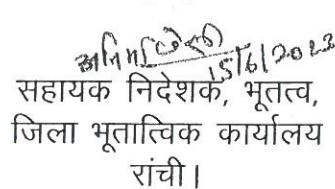 15/6/2023
सहायक निदेशक, भूतत्व,
जिला भूतात्विक कार्यालय
रांची।